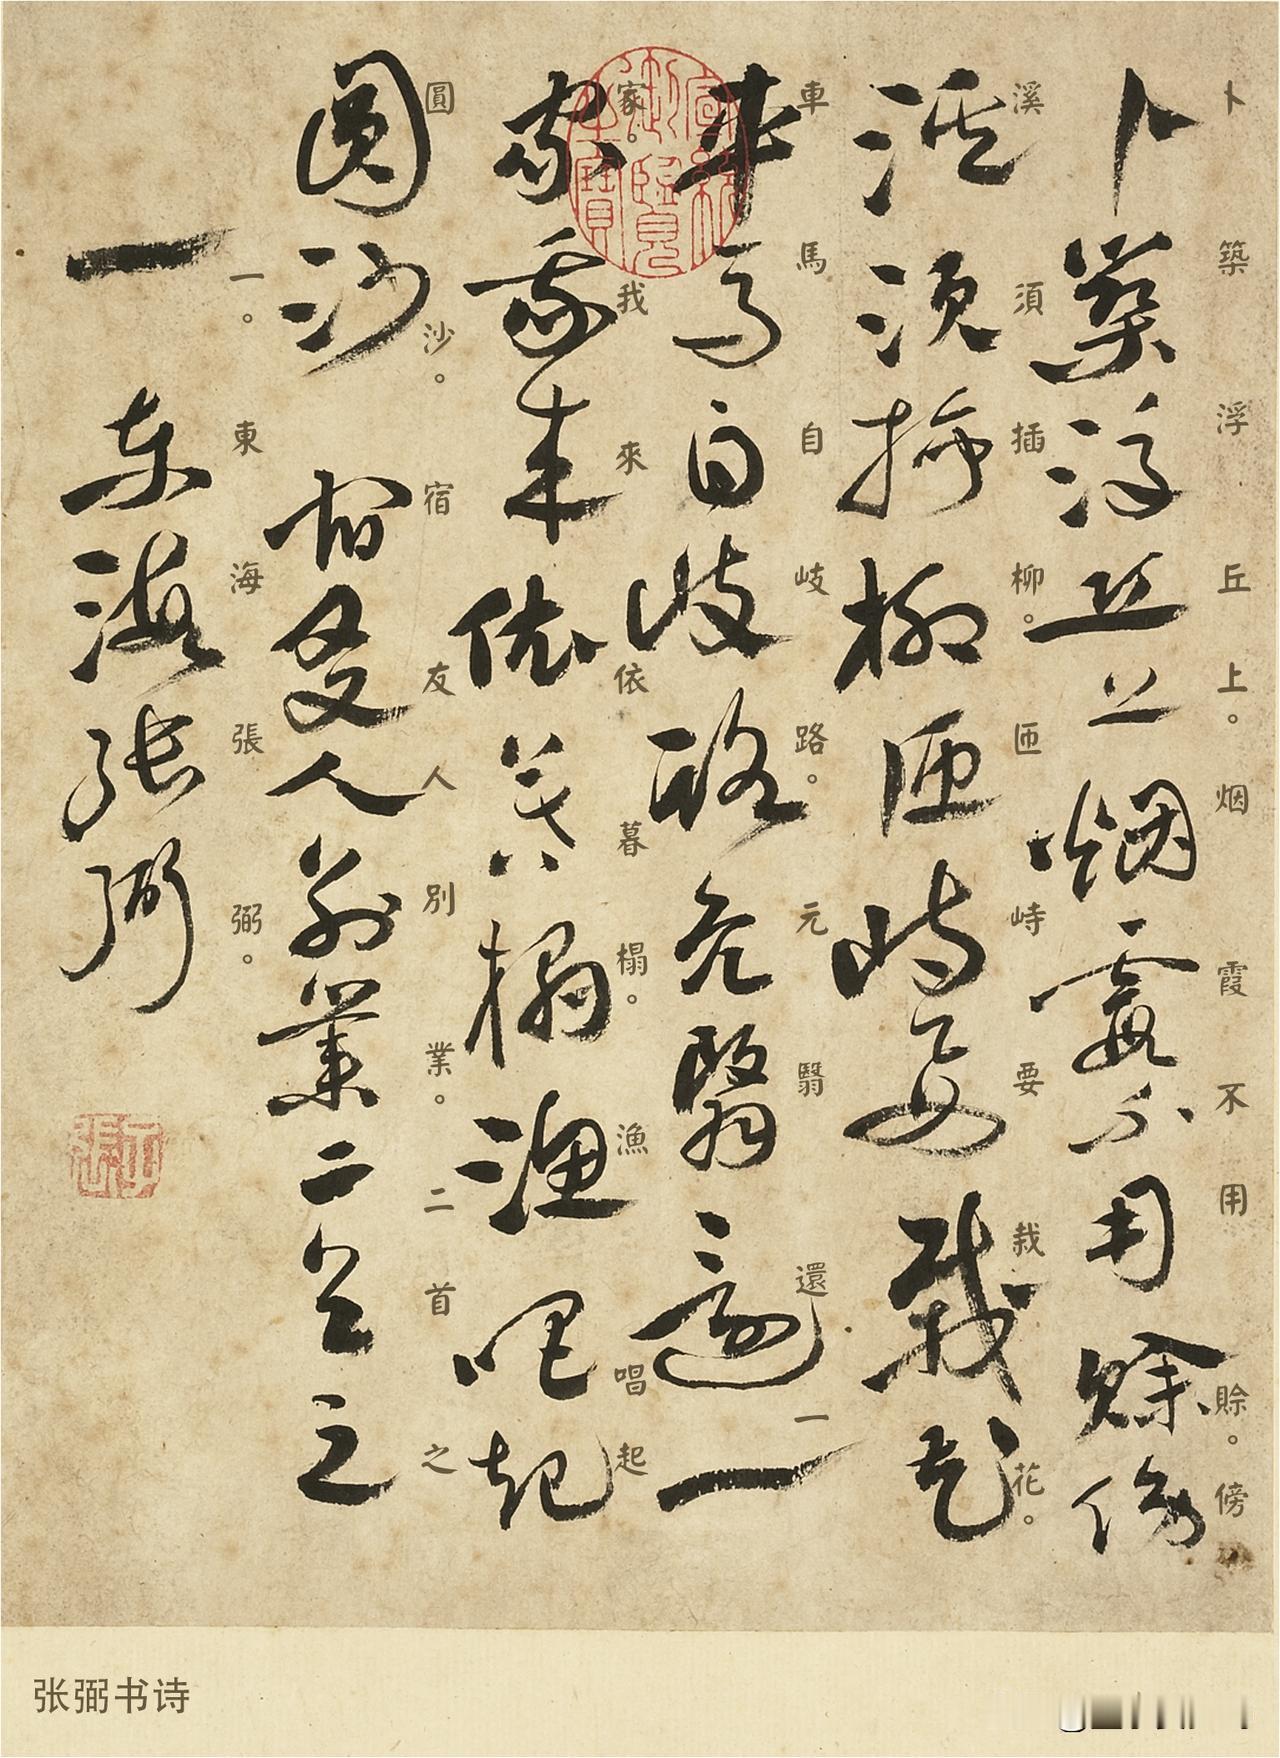 卜築浮丘上。烟霞不用賒。傍
卜築浮丘上烟霞不用賒傍
溪須插柳。匝峙要栽花。
溪須插柳匝峙要栽花
車馬自岐路。元翳還一
車馬自岐路元翳還一
家。我來依暮榻。漁唱起
家我來依暮榻漁唱起
圓沙。宿友人別業。二首之
圓沙宿友人別業二首之
一。東海張弼。
一東海張弼
宣統御覽之寶
张弼书诗